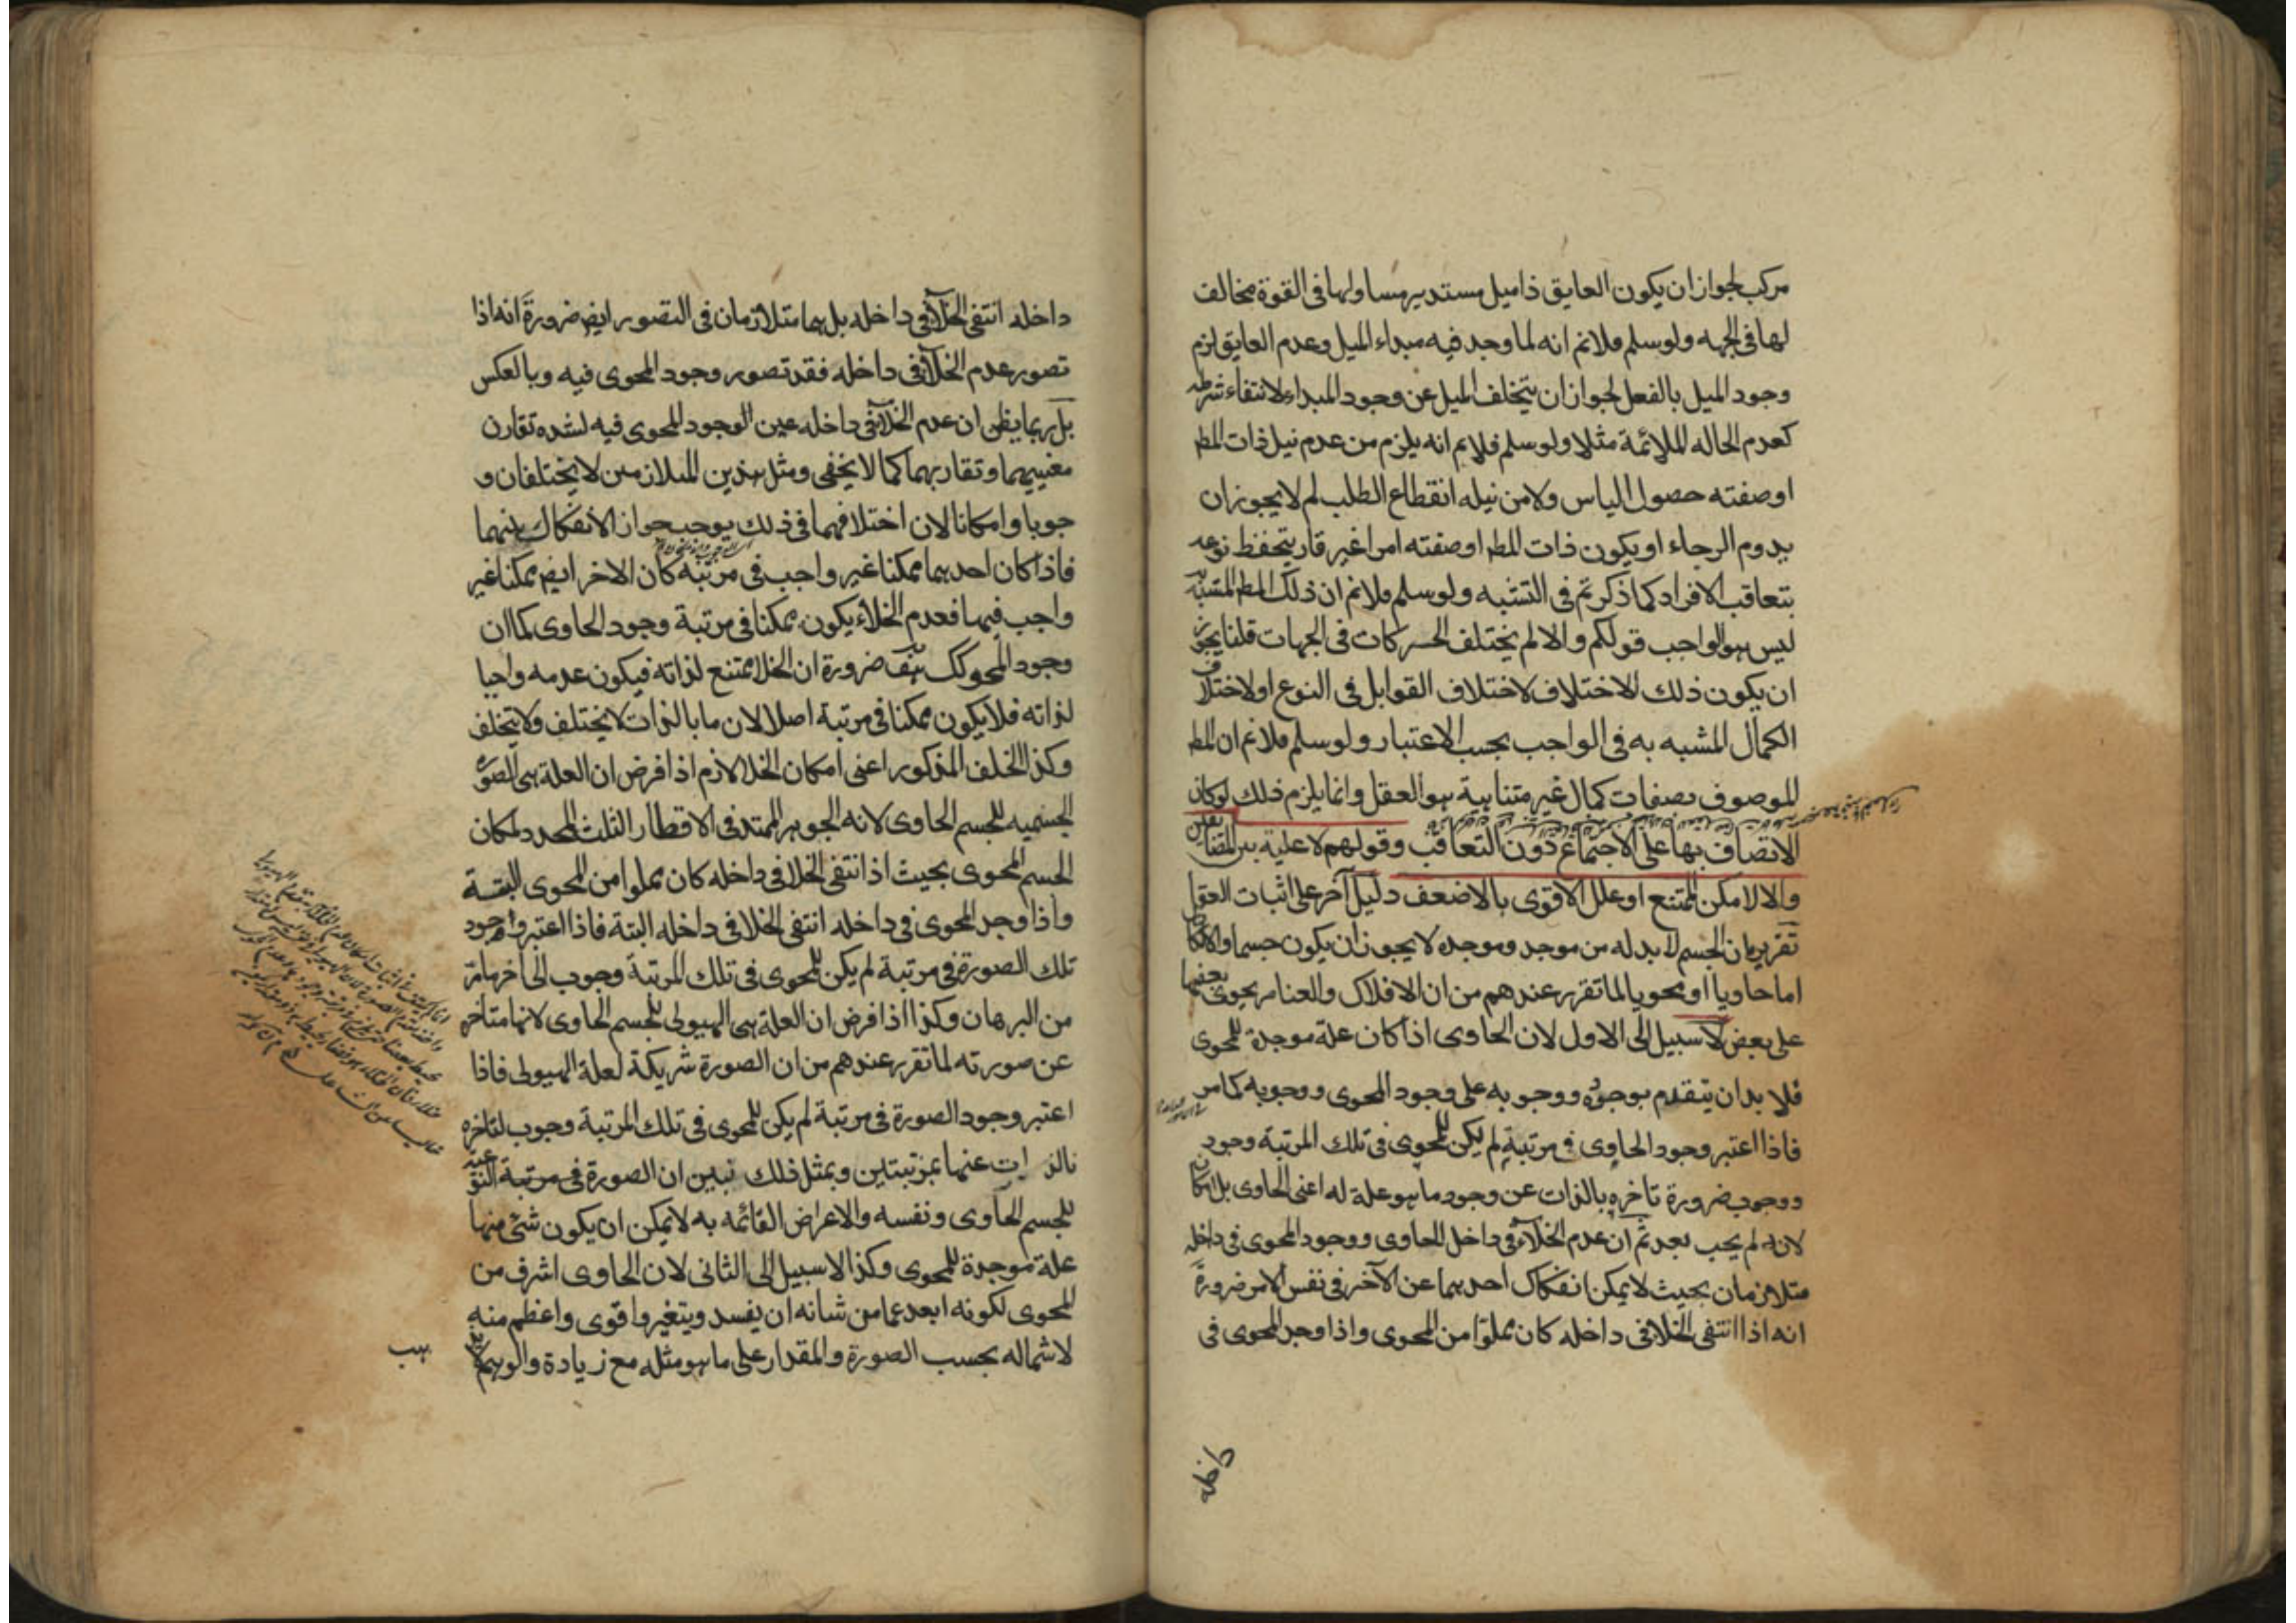 مركب لجواز ان يكون العايق ذا ميل مستدير مساو لها فى القوة مخالف
لها فى الجهه ولو سلم فلانم انه لما وجد فيه مبداء الميل وعدم العايق لزم
وجود الميل بالفعل لجواز ان يتخلف الميل عن وجود المبداء لانتفاء شرطه
كعدم الحاله الملائمة مثلا ولو سلم فلانم انه يلزم من عدم نيل ذات المط
او صفته حصول الياس ولا من نيله انقطاع الطلب لم لا يجوز ان
يدوم الرجاء او يكون ذات المط او صفته امرا غير قار يتحفظ نوعه
بتعاقب الافراد كما ذكرتم فى التشبه ولو سلم فلانم ان ذلك المط المتشبه
ليس هو الواجب قولكم والا لم يختلف الحركات فى الجهات قلنا يجوز
ان يكون ذلك الاختلاف لاختلاف القوابل فى النوع او لاختلاف
الكمال المشبه به فى الواجب بحسب الاعتبار ولو سلم فلانم ان المط
للموصوف بصفات كمال غير متناهية هو العقل وانما يلزم ذلك لو كان
الاتصاف بها على الاجتماع دون التعاقب وقولهم لا علية بين المتضايفين
والا لامكن الممتنع او علل الاقوى بالاضعف دليل آخر على اثبات العقل
تقريره ان الجسم لا بد له من موجد وموجده لا يجوز ان يكون جسما والا لكان
اما حاويا او محويا لما تقرر عندهم من ان الافلاك والعناصر يحوى بعضها
على بعض لا سبيل الى الاول لان الحاوى اذا كان علة موجدة للمحوى
فلا بد ان يتقدم بوجوده ووجوبه على وجود المحوى ووجوبه كما مر
فاذا اعتبر وجود الحاوى فى مرتبة لم يكن للمحوى فى تلك المرتبة وجود
ووجوب ضرورة تاخره بالذات عن وجود ما هو علة له اعنى الحاوى بل امكان
لانه لم يجب بعد ثم ان عدم الخلاء فى داخل الحاوى ووجود المحوى فى داخله
متلازمان بحيث لا يمكن انفكاك احدهما عن الآخر فى نفس الامر ضرورة
انه اذا انتفى الخلا فى داخله كان مملوا من المحوى واذا وجد المحوى فى
داخله
داخله انتفى الخلاء فى داخله بل هما متلازمان فى التصور ايض ضرورة انه اذا
تصور عدم الخلاء فى داخله فقد تصور وجود المحوى فيه وبالعكس
بل ربما يظن ان عدم الخلاء فى داخله عين الوجود المحوى فيه لشده تقارن
معنييهما وتقاربهما كما لا يخفى ومثل هذين المتلازمين لا يختلفان و
جوبا وامكانا لان اختلافهما فى ذلك يوجب جواز الانفكاك بينهما
فاذا كان احدهما ممكنا غير واجب فى مرتبة كان الاخر ايض ممكنا غير
واجب فيها فعدم الخلاء يكون ممكنا فى مرتبة وجود الحاوى كما ان
وجود المحوى كك هف ضرورة ان الخلا ممتنع لذاته فيكون عدمه واجبا
لذاته فلا يكون ممكنا فى مرتبة اصلا لان ما بالذات لا يختلف ولا يتخلف
وكذا الخلف المذكور اعنى امكان الخلا لازم اذا فرض ان العلة هى الصورة
الجسميه للجسم الحاوى لانه الجوهر الممتد فى الاقطار الثلث المحدد لمكان
الجسم المحوى بحيث اذا انتفى الخلا فى داخله كان مملوا من المحوى البتة
واذا وجد المحوى فى داخله انتفى الخلا فى داخله البتة فاذا اعتبر وجود
تلك الصورة فى مرتبة لم يكن للمحوى فى تلك المرتبة وجوب الى آخر ما مر
من البرهان وكذا اذا فرض ان العلة هى الهيولى للجسم الحاوى لانها متأخرة
عن صورته لما تقرر عندهم من ان الصورة شريكة لعلة الهيولى فاذا
اعتبر وجود الصورة فى مرتبة لم يكن للمحوى فى تلك المرتبة وجوب لتاخره
بالذات عنها بمرتبتين وبمثل ذلك نبين ان الصورة فى مرتبة النوعية
للجسم الحاوى ونفسه والاعراض القائمه به لا يمكن ان يكون شئ منها
علة موجدة للمحوى وكذا لا سبيل الى الثانى لان الحاوى اشرف من
المحوى لكونه ابعد عما من شانه ان يفسد ويتغير واقوى واعظم منه
لاشتماله بحسب الصورة والمقدار على ما هو مثله مع زيادة والوهم لا